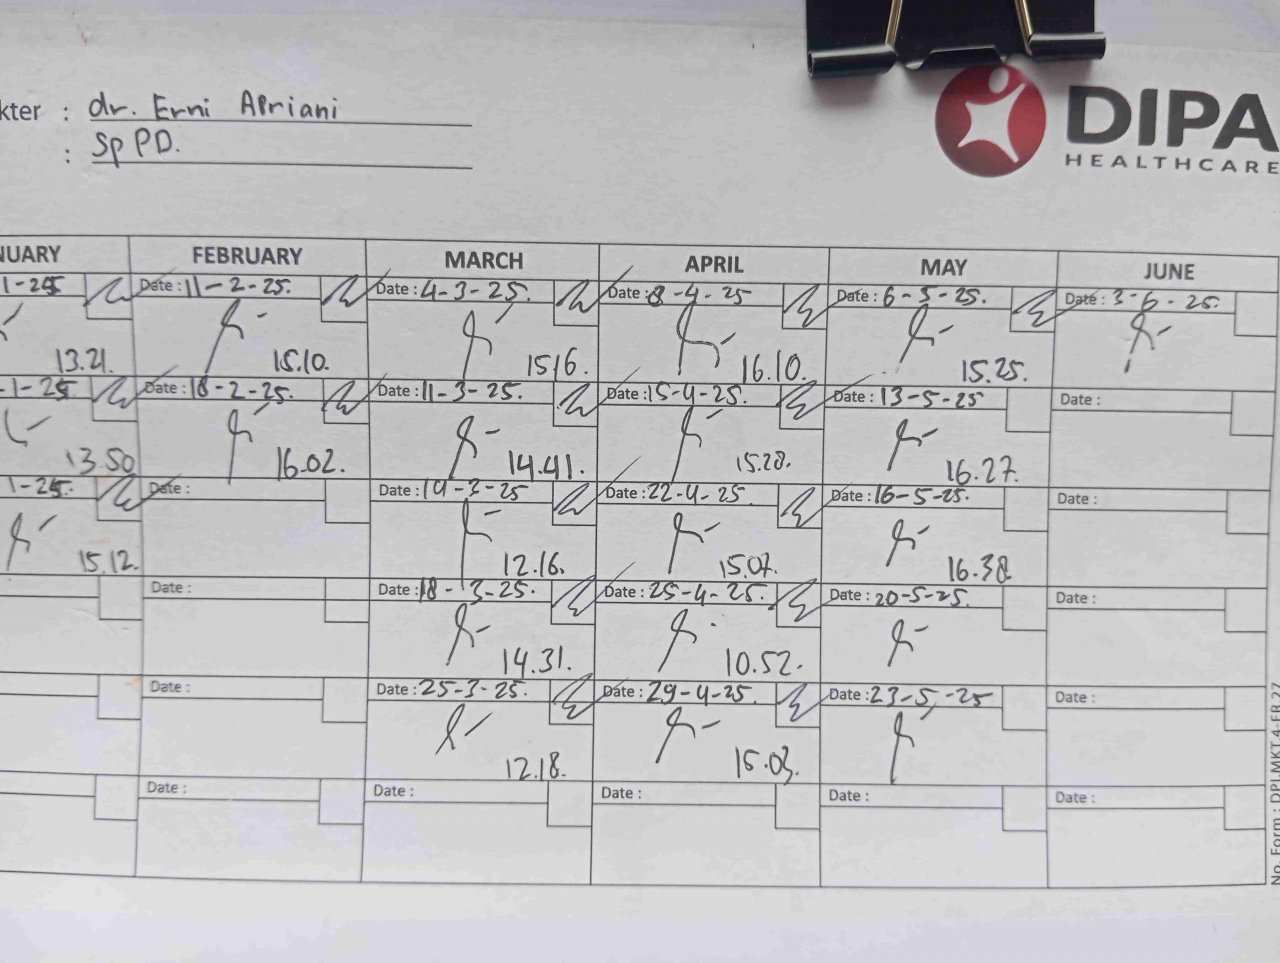 kter : dr. Erni Apriani
: Sp PD.
DIPA
HEALTHCARE
NUARY FEBRUARY MARCH APRIL MAY JUNE
1-25 Date : 11-2-25. Date : 4-3-25. Date : 8-4-25 Date : 6-5-25. Date : 3-6-25.
13.21. 15.10. 1516. 16.10. 15.25.
-1-25 Date : 18-2-25. Date : 11-3-25. Date : 15-4-25. Date : 13-5-25 Date :
13.50 16.02. 14.41. 15.28. 16.27.
1-25. Date : Date : 14-3-25 Date : 22-4-25. Date : 16-5-25. Date :
15.12. 12.16. 15.07. 16.38
Date : Date : 18-3-25. Date : 25-4-25. Date : 20-5-25. Date :
14.31. 10.52.
Date : Date : 25-3-25. Date : 29-4-25. Date : 23-5-25 Date :
12.18. 15.03.
Date : Date : Date : Date : Date :
No. Form : DPI.MKT.4-FR.27